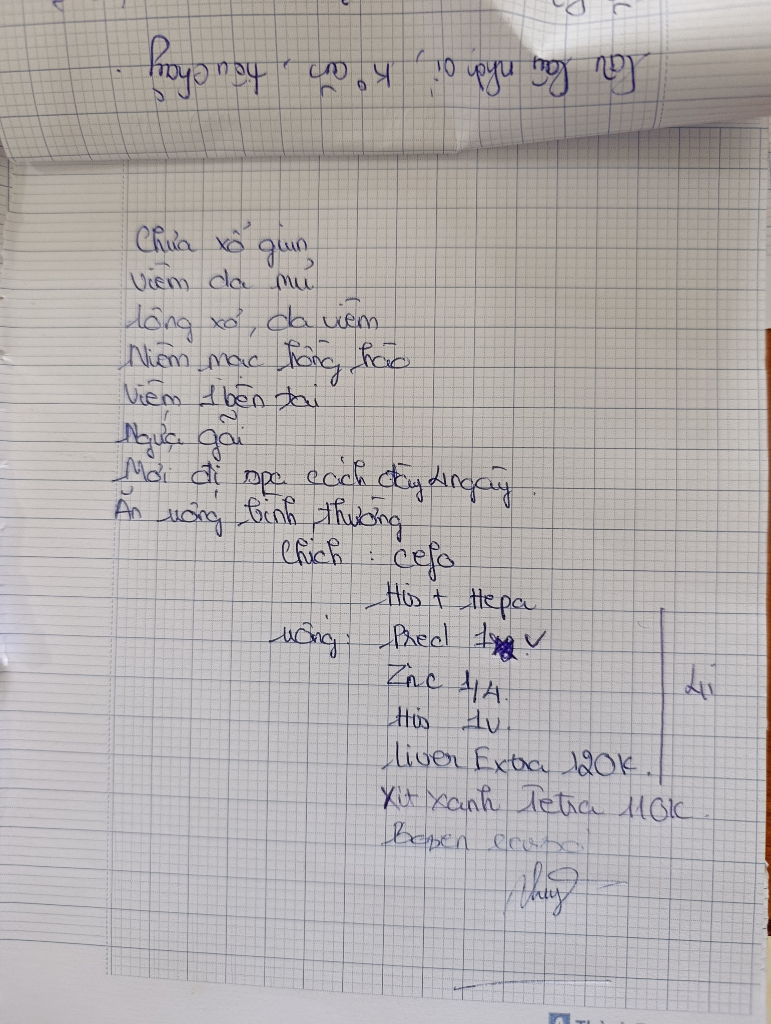 lâu lâu nhợn ói, k° ăn, tiêu chảy.
Chưa xổ giun
Viêm da mủ
lông xơ, da viêm
Niêm mạc hồng hào
Viêm 1 bên tai
Ngứa gãi
Mới đi spa cách đây 4 ngày.
Ăn uống bình thường
Chích : Cefo
His + Hepa
uống : Pred 1 v
Zinc 1/4
His 1v.
liver Extra 120K.
Xịt xanh Tetra 110K